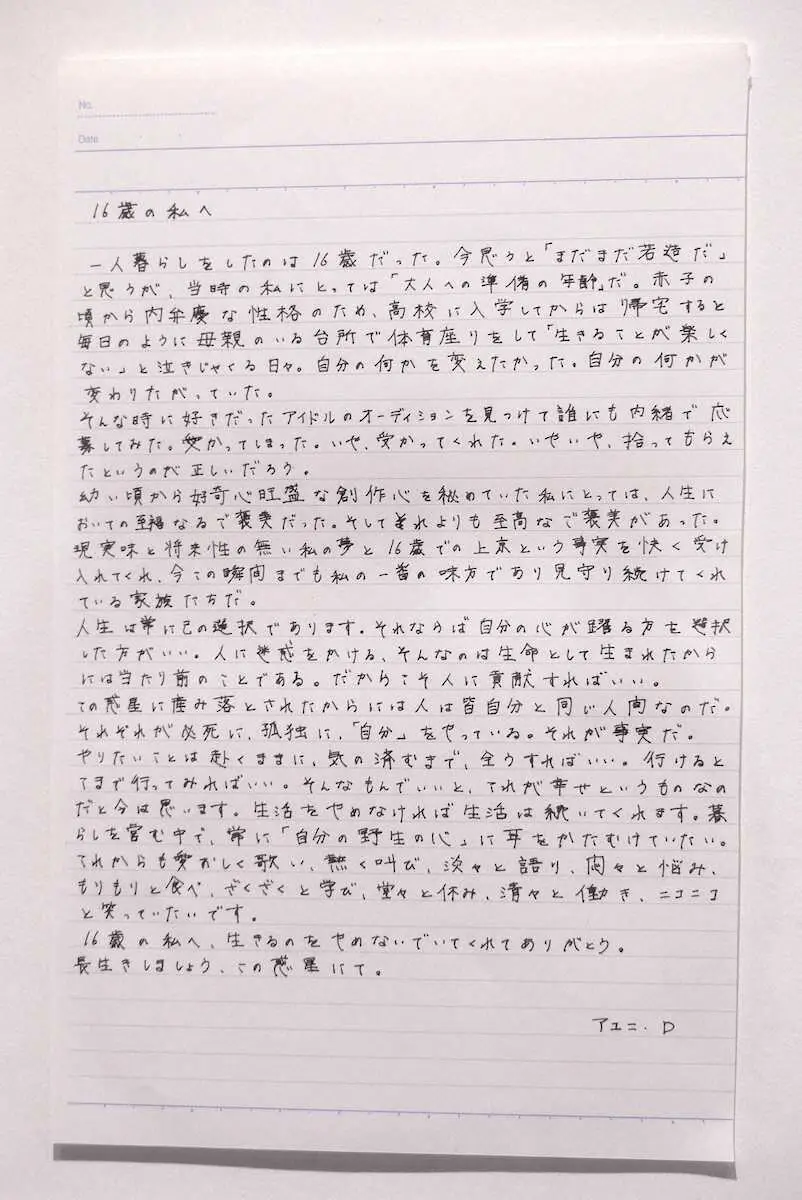 No.
Date
16歳の私へ
一人暮らしをしたのは16歳だった。今思うと「まだまだ若造だ」
と思うが、当時の私にとっては「大人への準備の年齢」だ。赤子の
頃から内弁慶な性格のため、高校に入学してからは帰宅すると
毎日のように母親のいる台所で体育座りをして「生きることが楽しく
ない」と泣きじゃくる日々。自分の何かを変えたかった。自分の何かが
変わりたがっていた。
そんな時に好きだったアイドルのオーディションを見つけて誰にも内緒で応
募してみた。受かってしまった。いや、受かってくれた。いやいや、拾ってもらえ
たというのが正しいだろう。
幼い頃から好奇心旺盛な創作心を秘めていた私にとっては、人生に
おいての至福なるご褒美だった。そしてそれよりも至高なご褒美があった。
現実味と将来性の無い私の夢と16歳での上京という事実を快く受け
入れてくれ、今この瞬間までも私の一番の味方であり見守り続けてくれ
ている家族たちだ。
人生は常に己の選択であります。それならば自分の心が躍る方を選択
した方がいい。人に迷惑をかける、そんなのは生命として生まれたから
には当たり前のことである。だからこそ人に貢献すればいい。
この惑星に産み落とされたからには人は皆自分と同じ人間なのだ。
それぞれが必死に、孤独に、「自分」をやっている。それが事実だ。
やりたいことは赴くままに、気の済むまで、全うすればいい。行けると
こまで行ってみればいい。そんなもんでいいと、これが幸せというものなの
だと今は思います。生活をやめなければ生活は続いてくれます。暮
らしを営む中で、常に「自分の野生の心」に耳をかたむけていたい。
これからも愛おしく歌い、熱く叫び、淡々と語り、悶々と悩み、
もりもりと食べ、ざくざくと学び、堂々と休み、清々と働き、ニコニコ
と笑っていたいです。
16歳の私へ、生きるのをやめないでいてくれてありがとう。
長生きしましょう、この惑星にて。
アユニ・D